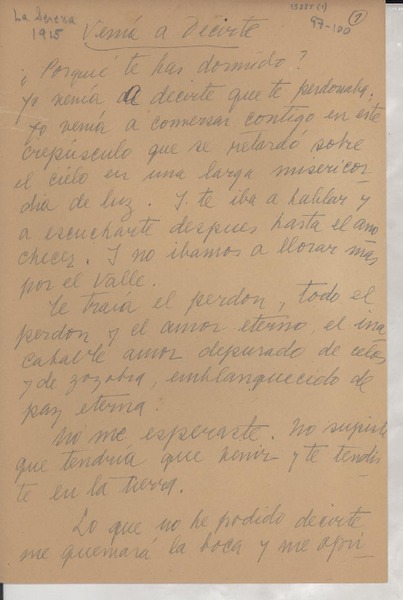 La Serena
1915
Venía a Decirte
97-100
1
¡Porqué te has dormido?
Yo venía a decirte que te perdonaba.
Yo venía a conversar contigo en este
crepúsculo que se retardó sobre
el cielo en una larga misericor
dia de luz. I te iba a hablar y
a escucharte despues hasta el ano
checer. I no ibamos a llorar mas
por el Valle.
Te traía el perdon, todo el
perdon y el amor eterno, el ina
cabable amor depurado de celos
y de zozobra, emblanquecido de
paz eterna.
No me esperaste. No supiste
que tendría que venir y te tendis
te en la tierra.
Lo que no he podido decirte
me quemará la boca y me agri